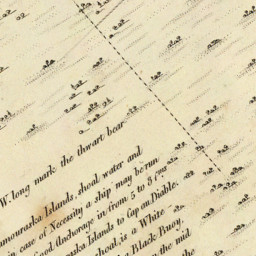 W. long mark the thwart bear
amouraska Islands, shoal water and
in case of Necessity a ship may be run
Good Anchorage in from 5 to 8 fms
Islands to Cap au Diable.
shoal, is a White
a Black Buoy.
the mid
the